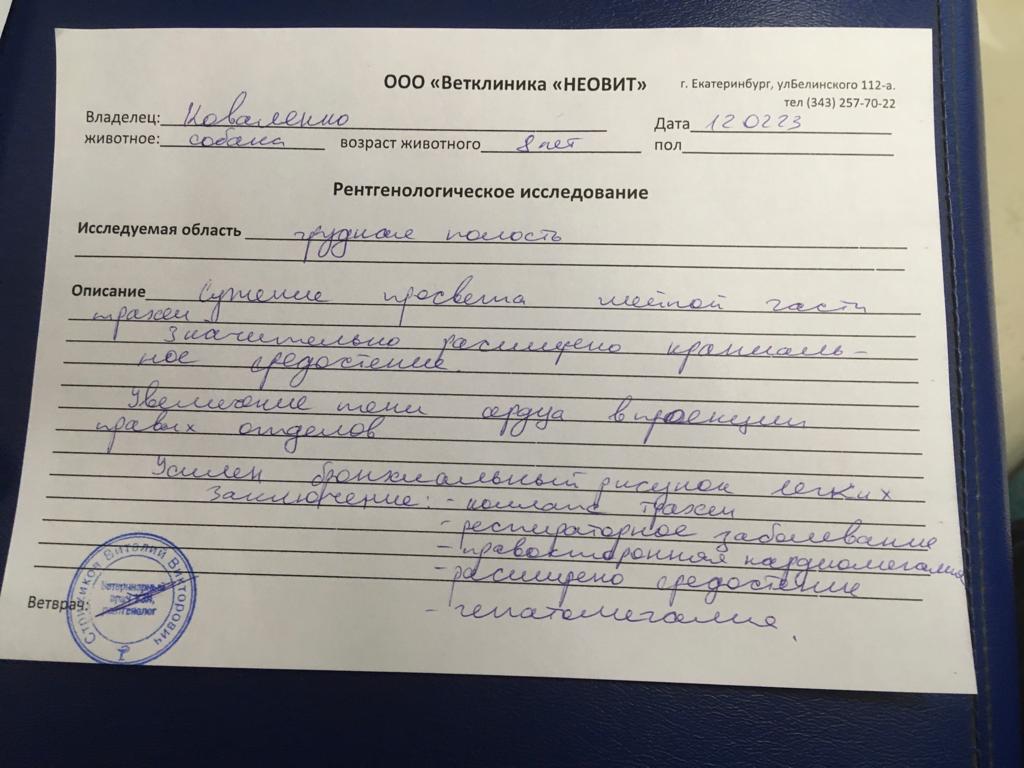 ООО «Ветклиника «НЕОВИТ»
г. Екатеринбург, улБелинского 112-а.
тел (343) 257-70-22
Владелец: Коваленко
Дата 12 02 23
животное: собака возраст животного 8 лет пол
Рентгенологическое исследование
Исследуемая область грудная полость
Описание Сужение просвета шейной части
трахеи
Значительно расширено краниаль-
ное средостение.
Увеличение тени сердца в проекции
правых отделов
Усилен бронхиальный рисунок легких
Заключение: - коллапс трахеи
- респираторное заболевание
- правосторонняя кардиомегалия
- расширено средостение
- гепатомегалия.
Ветврач:
Виталий Викторович
Ветеринарный
врач
рентгенолог